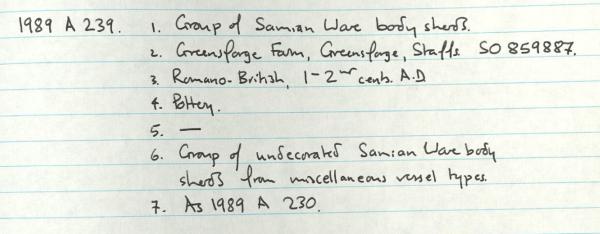 1989 A 239. 1. Group of Samian Ware body sherds.
2. Greensforge Farm, Greensforge, Staffs SO 859887.
3. Romano-British, 1-2nd cents. A.D
4. Pottery.
5. —
6. Group of undecorated Samian Ware body
sherds from miscellaneous vessel types.
7. As 1989 A 230.